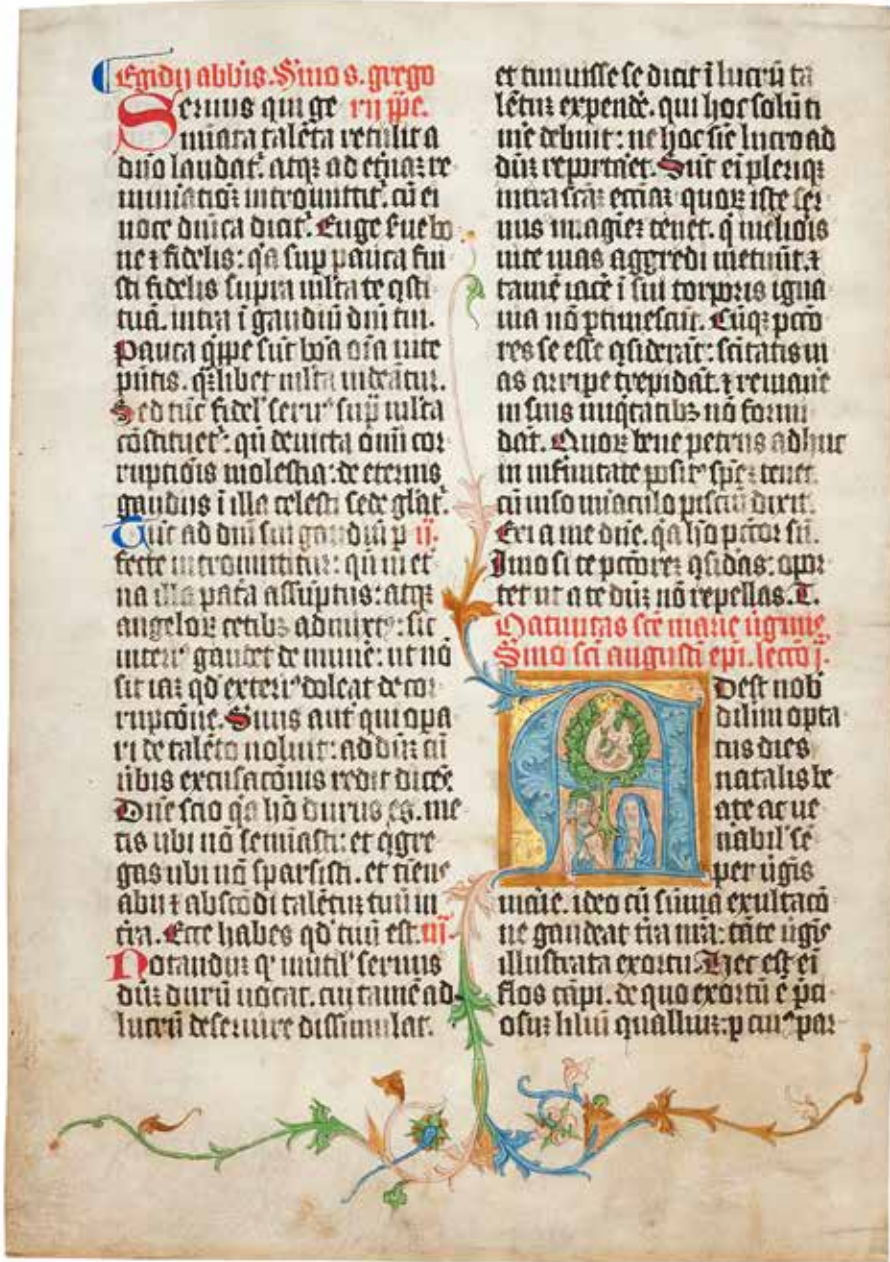 Egidij abbis. Smo s. grego
Seruus qui ge rij ppe.
minata talēta retulit a
dño laudat᷑. atq̄ ad et̄naꝫ re
muniatioꝫ intromittit᷑. cū ei
uoce dnīca dicit᷑. Euge sue bo
ne ⁊ fidelis: qꝛ suꝑ pauca fui
sti fidelis supra ml̄ta te ꝯsti
tuā. intra ī gaudiū dnī tui.
Pauca qͥppe sūt bōa oīa uite
pñtis. qͣꝫlibet ml̄ta uideāt᷑.
Sed tūc fidel̓ seru᷒ suꝑ ml̄ta
cōstituet᷑: qn̄ deuicta om̄i cor
ruptiōis molestia: de eternis
gaudiis ī illa celesti sede gl̄at᷑.
Tūc ad dnī sui gaudiū ꝑ ij.
fecte intromittit᷑: qn̄ in et̄
na illa pat̄a assūptus: atq̄
angeloꝝ cetibꝫ admixt᷒: sic
interi᷒ gaudet de mune᷑: ut nō
sit iaꝫ qd̓ exteri᷒ doleat de cor
rupcōne. Suus aut̄ qui oꝑa
ri de talēto noluit: ad dn̄ꝫ cū
ūbis excusacōnis redit dicēs
Dn̄e scio qꝛ hō durus es. me
tis ubi nō semīasti: et ꝯgre
gas ubi nō sparsisti. et timēs
abii ⁊ abscōdi talētuꝫ tuū in
t̄ra. Ecce habes qd̓ tuū est. iij.
Notanduꝫ ꝙ inutil̓ seruus
dn̄ꝫ durū uocat. cui tamē ad
lucrū deseruire dissimulat.
et timuisse se dicit ī lucrū ta
lētuꝫ expende᷑. qui hoc solū ti
me᷑ debuit: ne hoc siē lucro ad
dn̄ꝫ reportaret. Sūt ei̅ pleriqꝫ
intra scāꝫ ecciaꝫ quoꝝ iste ser
uus imagīeꝫ tenet. q̄ melioris
uite uias aggredi metuūt. ⁊
tamē iace᷑ ī sui corporis igna
uia nō ꝑtimescūt. Cūqꝫ pctō
res se esse ꝯsiderāt: scītatis ui
as arripe᷑ trepidāt. ⁊ remane᷑
in suis iniqͥtatibꝫ nō formi
dāt. Quoꝝ bene petrus adhuc
in infirmitate posit᷒ spēꝫ tenet.
cū uiso miraculo pisciū dixit.
Exi a me dn̄e. qꝛ hō pctōr sū.
Imo si te pctōreꝫ ꝯsidas: opor
tet ut a te dn̄ꝫ nō repellas. T.
Natiuitas scē marie ūginis
Smo scī augustī epī. lectō j.
Adest nob
dilmi opta
tus dies
natalis be
ate ac ue
nabil̓ sē
per ūgīs
marie. ideo cū sūma exultacō
ne gaudeat t̄ra nr̄a: tāte ūgīs
illustrata exortu. Hec est ei̅
flos cāpi. de quo exortū ē p̄ci
osuꝫ liliū ꝯualliuꝫ: ꝑ cui᷒ par